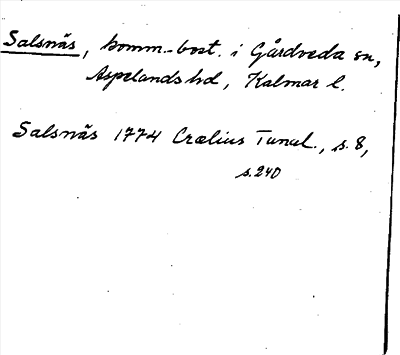 Salsnäs, komm.-bost. i Gårdveda sn,
Aspelands hd, Kalmar l.
Salsnäs 1774 Crælius Tunal., s. 8,
s. 240